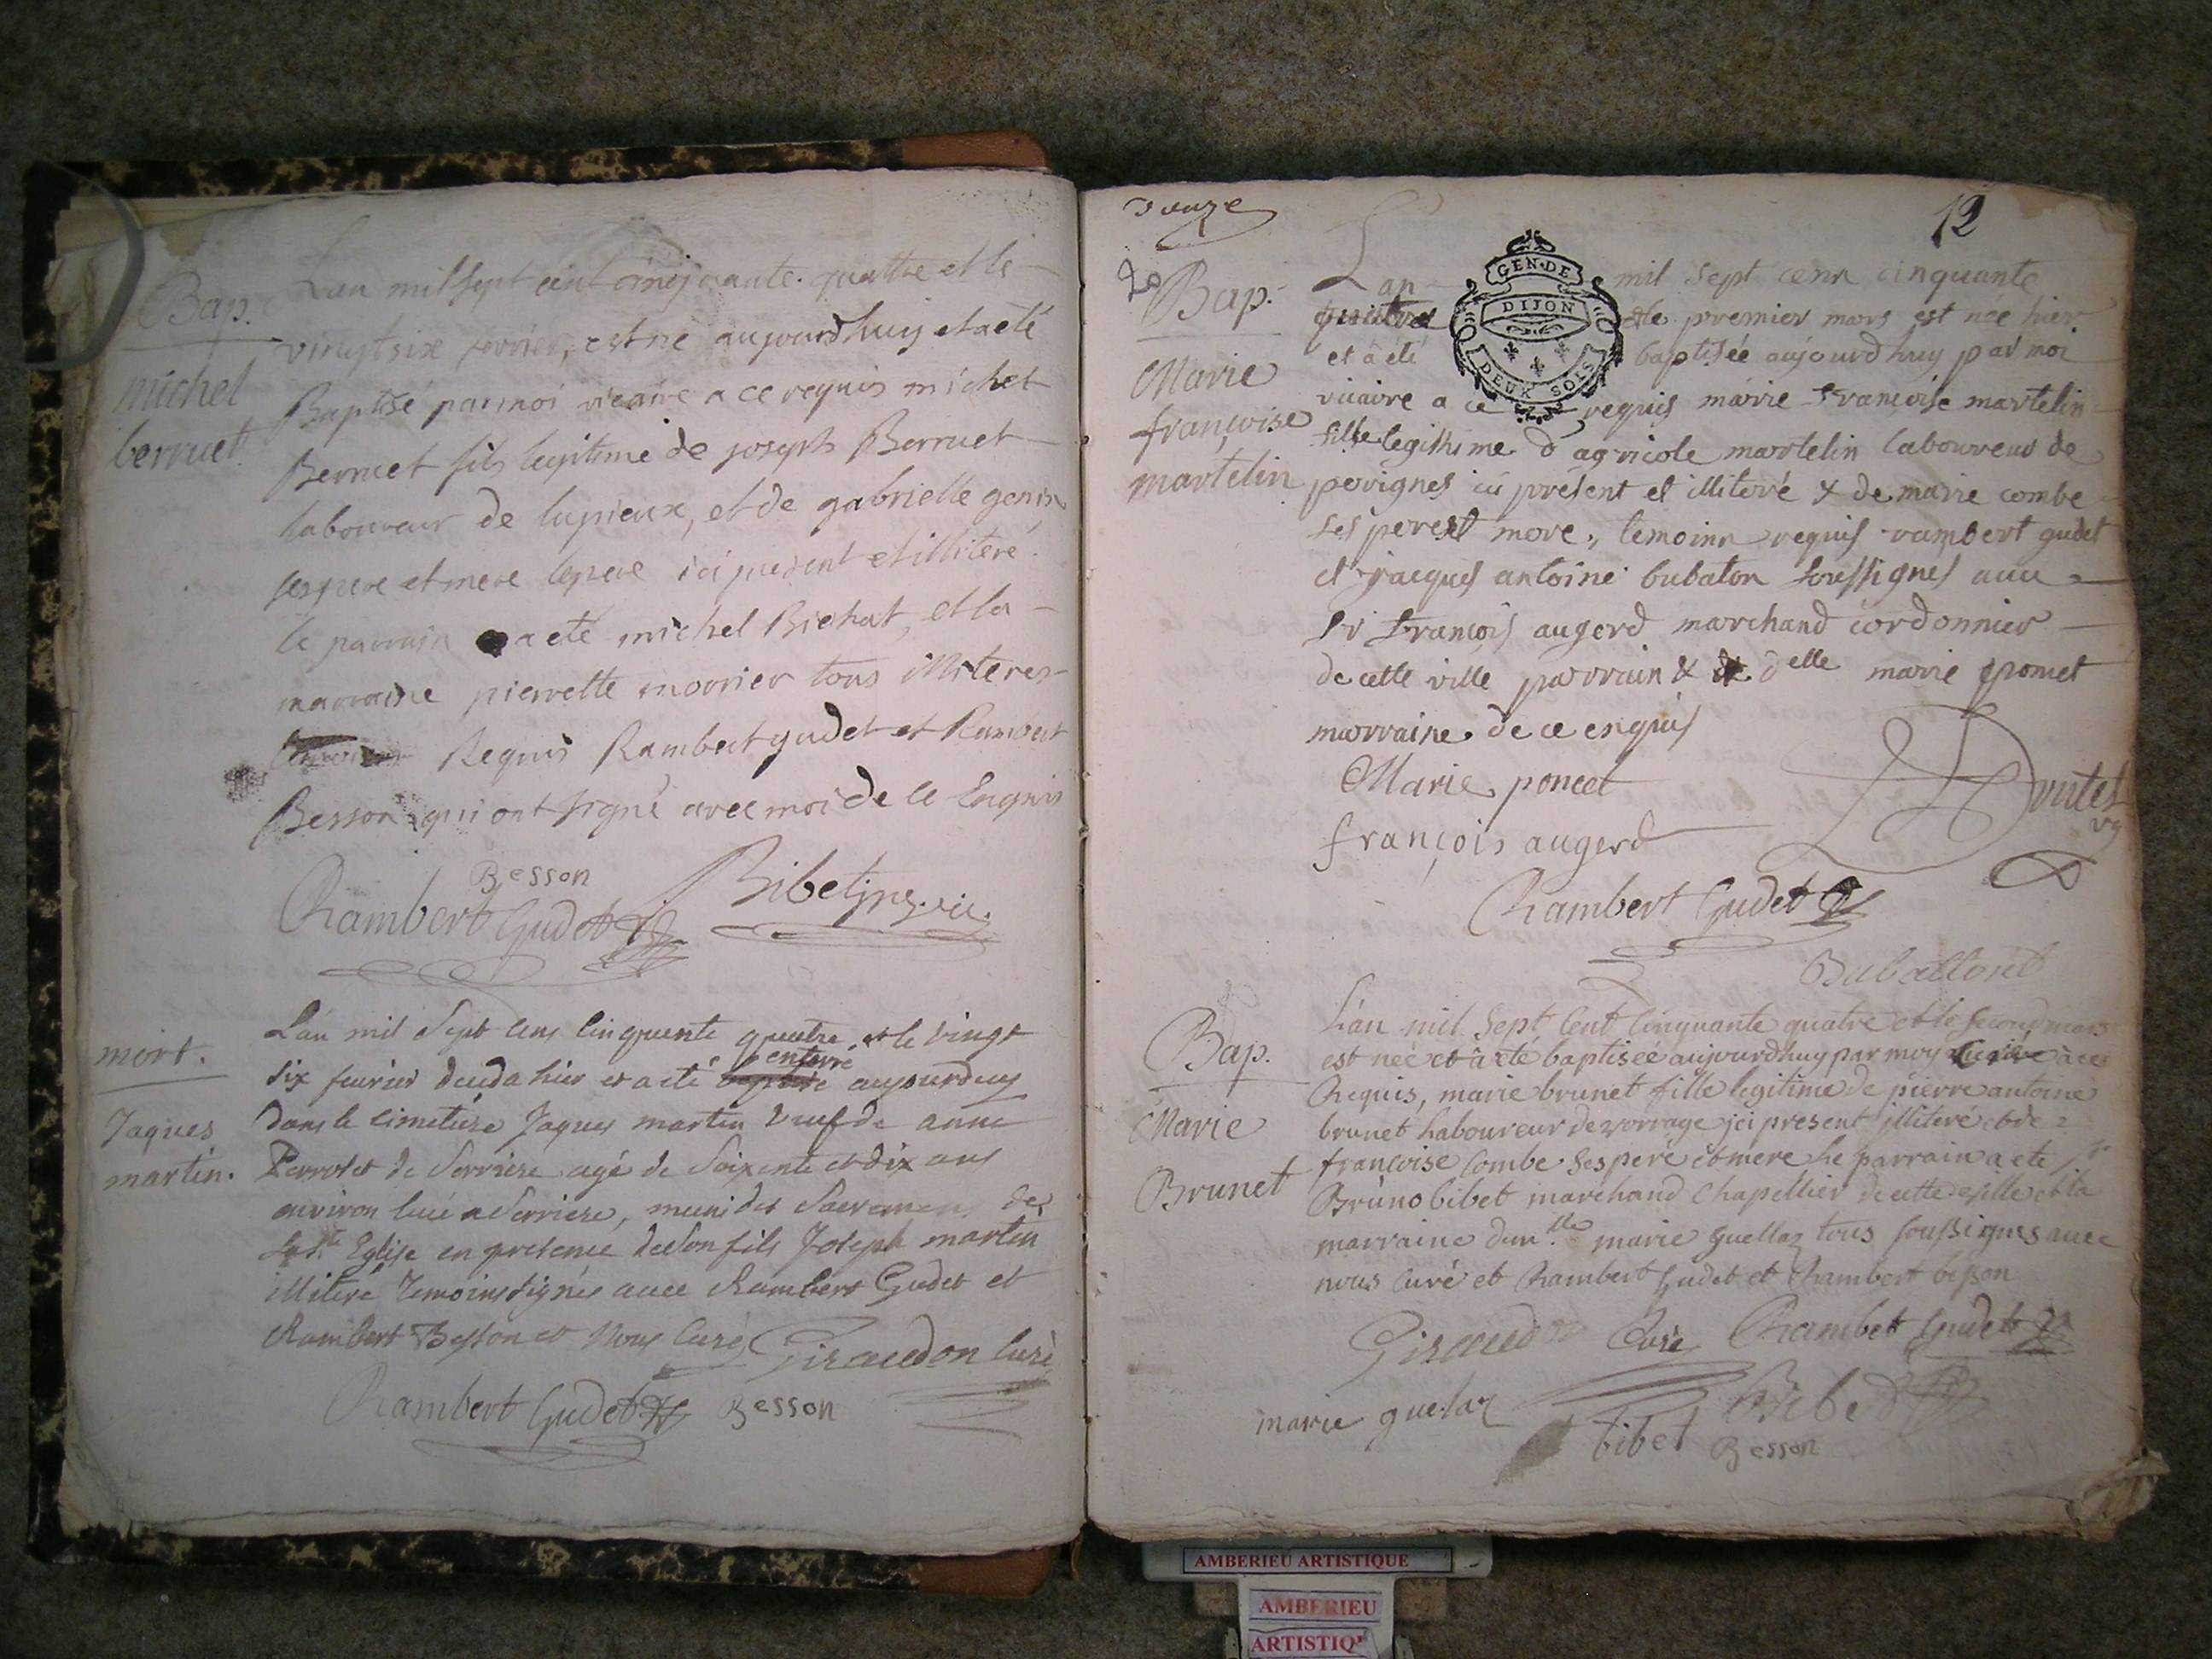 Bap.
michel
berruet
Lan mil sept cent cinquante quattre et le
vingt six fevrier, est né aujourdhuy et a eté
Baptisé par moi vicaire a ce requis michel
Berruet fils legitime de joseph Berruet
laboureur de lupieux, et de gabrielle genin
ses pere et mere le pere ici present et illiteré
le parrain a eté michel Bichat, et la
marraine pierrette morrier tous illiteres
Requis Rambert gudet et Rambert
Besson qui ont signé avec moi de ce Enquis
Besson
Rambert Gudet Bibet vic.
mort.
Jaques
martin.
L'an mil Sept Cens Cinquante quattre et le vingt
six fevrier deceda hier et a eté enterré aujourdhuy
Dans le Cimetiere Jaques martin veuf de anne
Perrolet de Serriere agé de Soixente et dix ans
environ luié a Serriere, muni des Sacremens de
Ste Eglise en presence de Son fils Joseph martin
illiteré Temoins signés avec Rambert Gudet et
Rambert Besson et Nous Curé Giraudon Curé
Rambert Gudet Besson
douze
12
GEN. DE
DIJON
DEUX SOLS
Bap.
Marie
françoise
martelin
Lan mil sept cent cinquante
quattre et le premier mars est née hier
et a été baptisée aujourd huy par moi
vicaire a ce requis marie francoise martelin
fille legithime d'agricole martelin laboureur de
perignes ici présent et illiteré & de marie combe
ses pere et mere, temoins requis rambert gudet
et jacques antoine bubaton soussignes avec
Sr François augerd marchand cordonnier
de cette ville parrain & delle marie poncet
marraine de ce enquis
Marie poncet
françois augerd
Rambert Gudet
Bap.
Marie
Brunet
L'an mil Sept Cent Cinquante quatre et le second mars
est née et a eté baptisée aujourdhuy par moy Curé a ce
Requis, marie brunet fille legitime de pierre antoine
brunet Laboureur de vorrage jci present illiteré et de
françoise Combe Ses pere et mere le parrain a ete Sr
Bruno bibet marchand Chapellier de cette ville et la
marraine dem.lle marie guellaz tous soussignes avec
nous Curé et Rambert Gudet et Rambert besson
Giraudon Curé Rambet Gudet
marie guelaz bibet Bibet
Besson
AMBERIEU ARTISTIQUE
AMBERIEU
ARTISTIQ